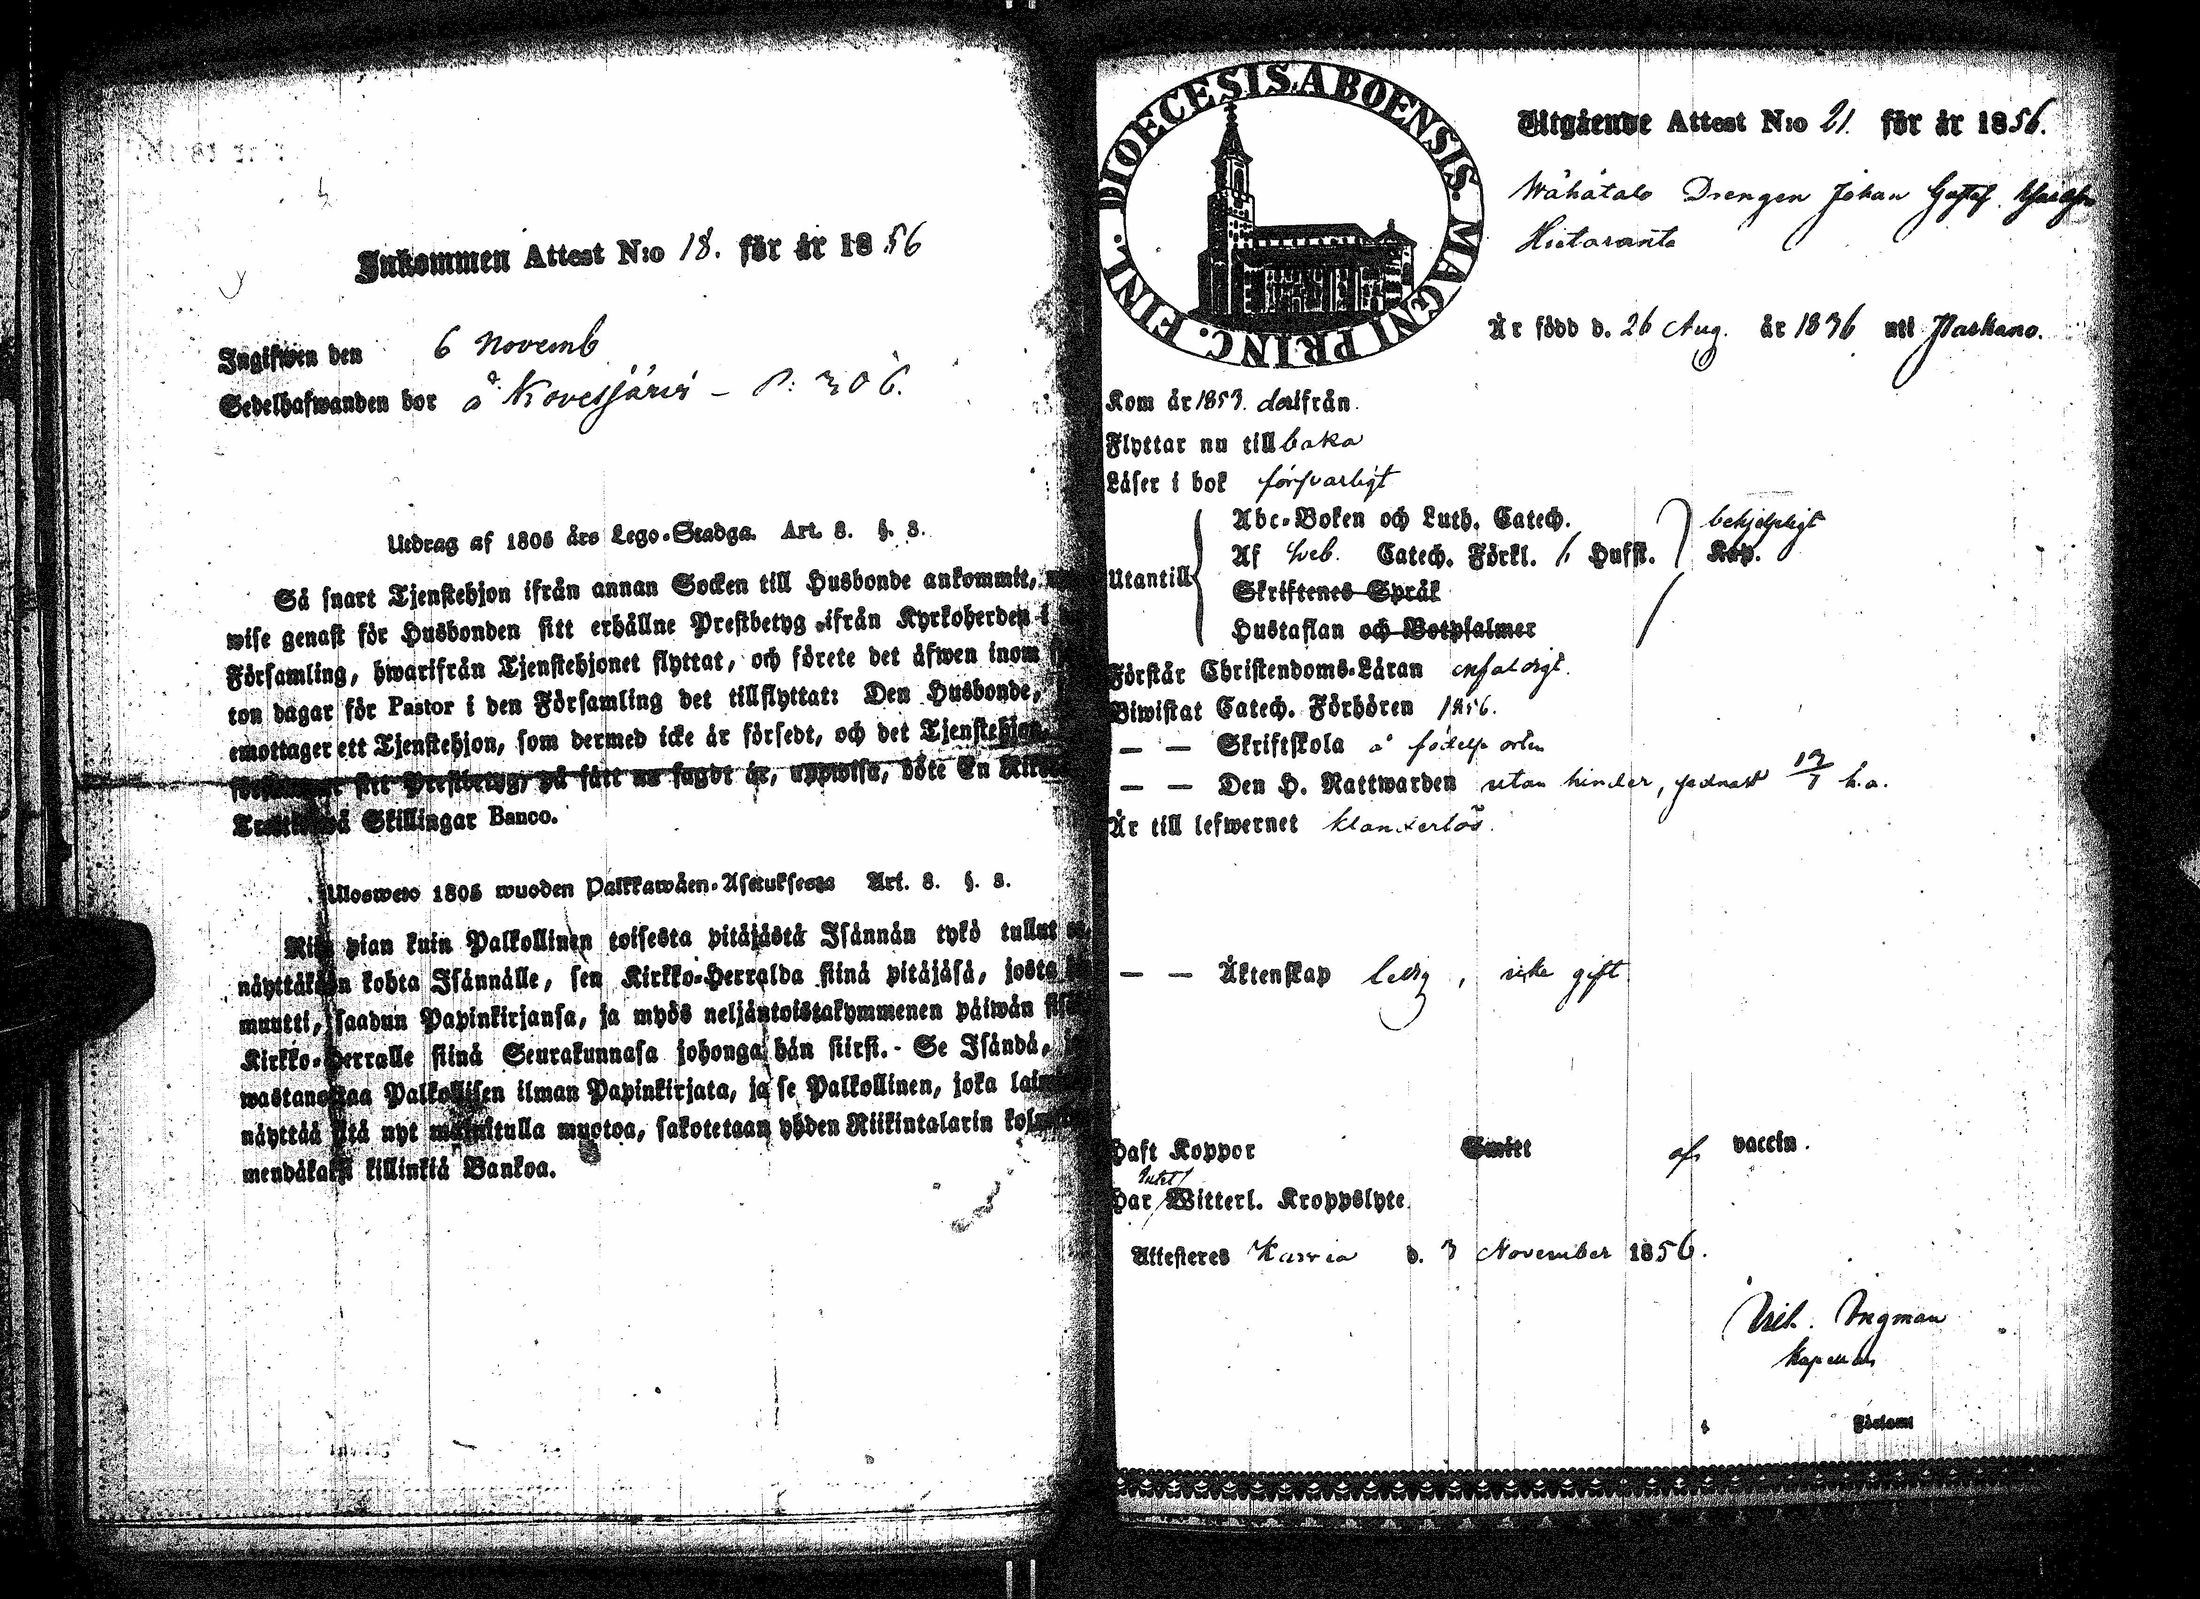 Inkommen Attest N:o 18. för år 1856
Ingifwen den 6 Novemb
Sedelhafwanden bor å Kovesjärvi – P: 306.
Utdrag af 1805 års Lego-Stadga. Art. 8. §. 3.
Så snart Tjenstehjon ifrån annan Socken till Husbonde ankommit,
wise genast för Husbonden sitt erhållne Prestbetyg ifrån Kyrkoherden i
Församling, hwarifrån Tjenstehjonet flyttat, och förete det äfwen inom
ton dagar för Pastor i den Församling det tillflyttat: Den Husbonde,
emottager ett Tjenstehjon, som dermed icke är försedt, och det Tjenstehjon,
sitt Prestbetyg, på sätt nu sagdt är, uppwisa, böte En
Skillingar Banco.
Ulosweto 1805 wuoden Palkkawäen-Asetuksesta Art. 8. §. 3.
Niin pian kuin Palkollinen toisesta pitäjästä Isännän tykö tullut
näyttäkään kohta Isännälle, sen Kirkko-Herralda siinä pitäjäsä, josta
muutti, saadun Papinkirjansa, ja myös neljäntoistakymmenen päiwän
Kirkko-Herralle siinä Seurakunnasa johonga hän siirsi. - Se Isändä,
wastanottaa Palkollisen ilman Papinkirjata, ja se Palkollinen, joka
näyttää sitä nyt mainitulla muotoa, sakotetaan yhden Riikintalarin
mendäkaksi killinkiä Bankoa.
DIOECESIS ABOENSIS. MAGNI PRINC. FINL.
Utgående Attest N:o 21. för år 1856.
Wähätalo Drengen Johan Gustaf
Hietaranta
Är född d. 26 Aug. år 1836 uti Parkano.
Kom år 1853. derifrån.
Flyttar nu tillbaka
Läser i bok försvarligt
Abc-Boken och Luth. Catech. behjelpligt
Utantill Af Sveb. Catech. Förkl. 6 Hufst. Kap.
Skriftenes Språk
Hustaflan och Botpsalmer
Förstår Christendoms-Läran enfaldigt.
Biwistat Catech. Förhören 1856.
— — Skriftskola å födelse orten
— — Den H. Nattwarden utan hinder, sednast h.a.
Är till lefwernet klanderlös.
— — Äktenskap ledig, icke gift.
Haft Koppor Smitt af vaccin.
Har intet Witterl. Kroppslyte.
Attesteres Karvia d. 3 November 1856.
Vilh. Ingman
Kapellan